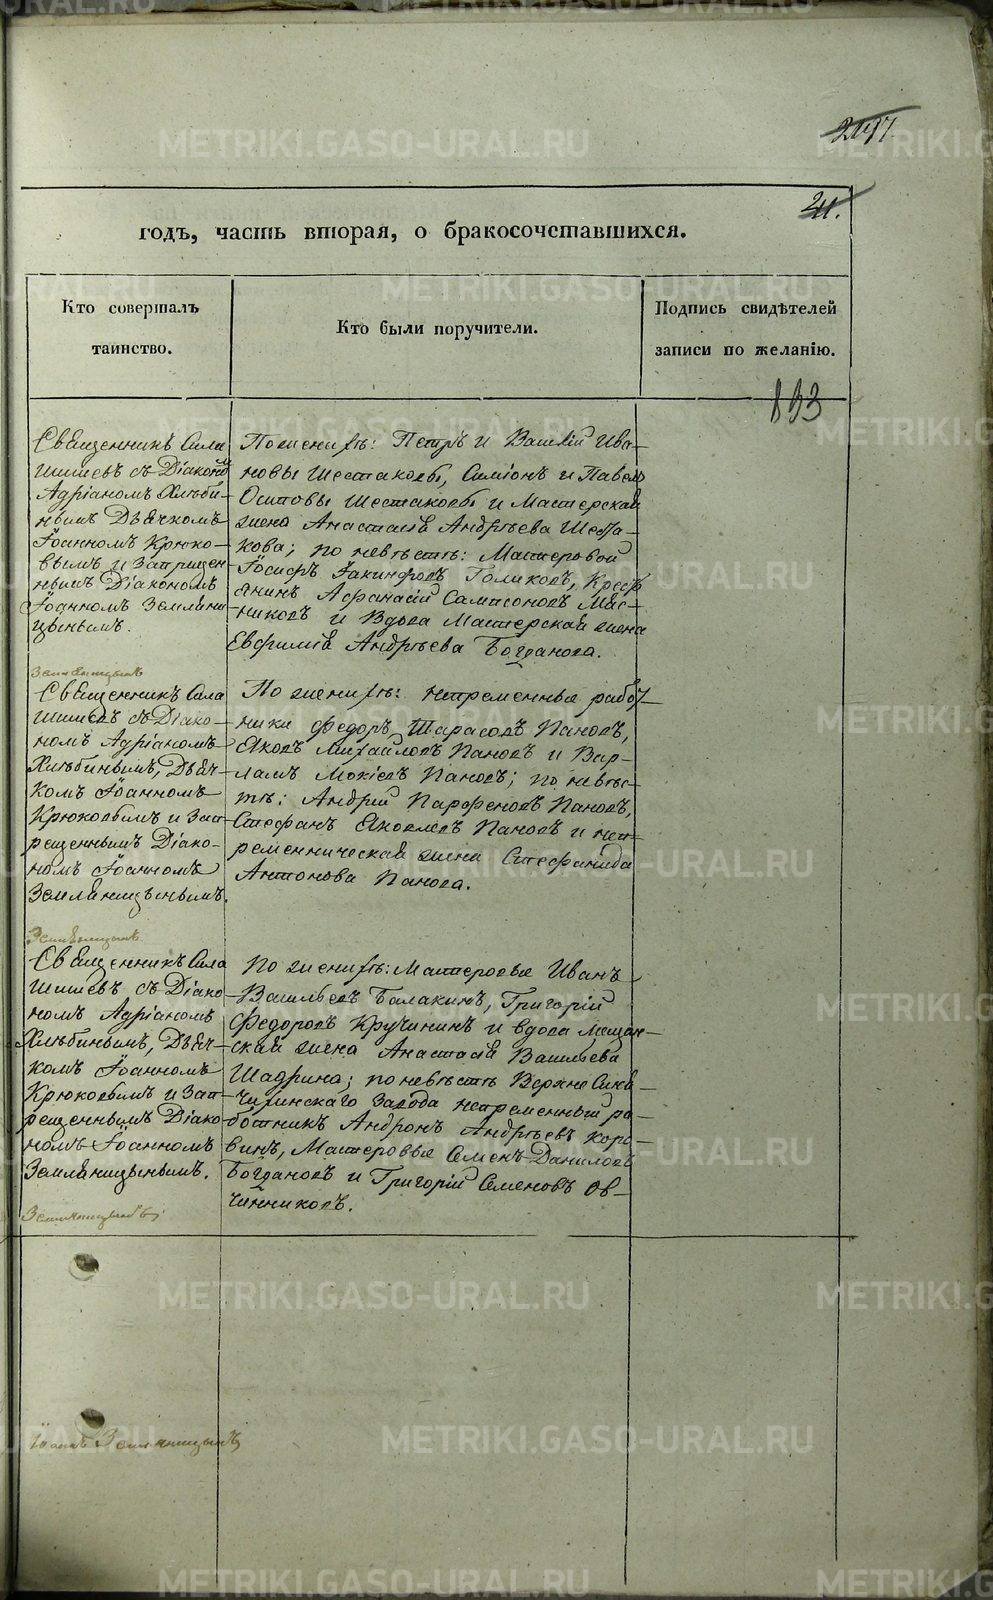 2417
24.
годъ, часть вторая, о бракосочетавшихся.
Кто совершалъ
таинство.
Кто были поручители.
Подпись свидѣтелей
записи по желанію.
893
Священникъ Сила
Шишевъ съ Діакономъ
Адріаномъ Хлѣби-
нымъ Дьячкомъ
Іоанномъ Крюко-
вымъ и Запрещен-
нымъ Діакономъ
Іоанномъ Земляни-
цынымъ.
Земляницынъ
По женихѣ: Петръ и Василій Ива-
новы Шестаковы, Симіонъ и Павелъ
Осиповы Шестаковы и Мастерская
жена Анастасія Андрѣева Шеста-
кова; по невѣстѣ: Мастеровой
Іосифъ Іакинфовъ Голиковъ, Крестъ
янинъ Афанасій Сампсоновъ Мяс-
никовъ и Вдова Мастерская жена
Евфимія Андрѣева Богданова.
Священникъ Сила
Шишевъ съ Діако-
номъ Адріаномъ
Хлѣбинымъ, Дьяч-
комъ Іоанномъ
Крюковымъ и Зап-
рещеннымъ Діако-
номъ Іоанномъ
Земляницынымъ.
Земляницынъ
По женихѣ: непременные рабо-
ники Федоръ Тарасовъ Пановъ,
Яковъ Михайловъ Пановъ и Вар-
ламъ Мокіевъ Пановъ; по невѣс-
тѣ: Андрей Парфеновъ Пановъ,
Стефанъ Яковлевъ Пановъ и неп-
ременническая жена Стефанида
Антонова Панова.
Священникъ Сила
Шишевъ съ Діако
номъ Адріаномъ
Хлѣбинымъ, Дьяч-
комъ Іоанномъ
Крюковымъ и Зап-
рещеннымъ Діако-
номъ Іоанномъ
Земляницынымъ.
Земляницынъ
По женихѣ: Мастеровые Иванъ
Васильевъ Балакинъ, Григорій
Федоровъ Кручининъ и вдова Мещан-
ская жена Анастасія Васильева
Шадрина; по невѣстѣ Верхне Сине-
чихинскаго Завода непременный ра-
ботникъ Андронъ Андрѣевъ Коро-
винъ, Мастеровые Семенъ Даниловъ
Богдановъ и Григорій Семеновъ Ов-
чинниковъ.
Іоаннъ Земляницынъ
METRIKI.GASO-URAL.RU